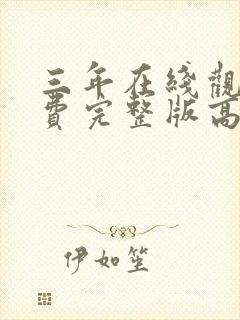 三年在綫觀
費完整版高
伊如笙